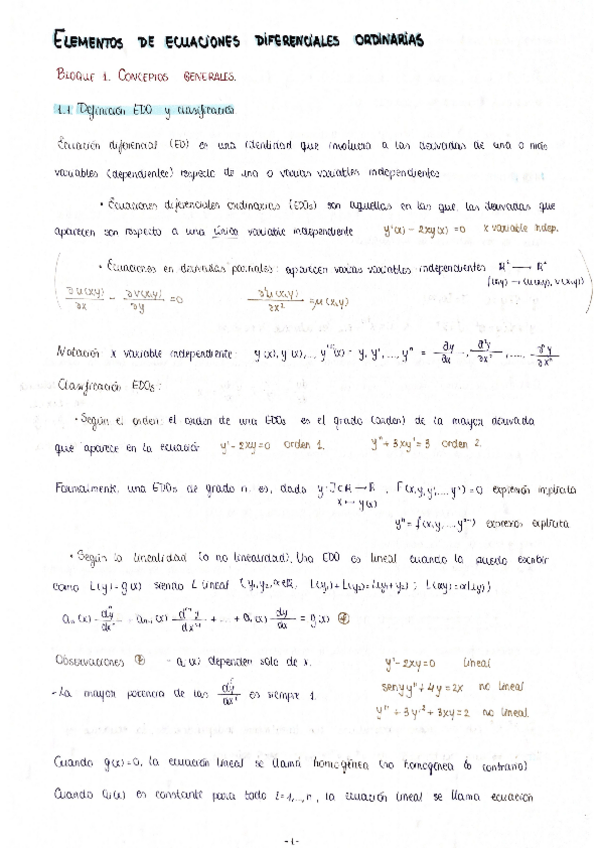 ELEMENTOS DE ECUACIONES DIFERENCIALES ORDINARIAS
BLOQUE 1. CONCEPTOS GENERALES.
1.1 Definición EDO y clasificación
Ecuación diferencial (ED) es una identidad que involucra a las derivadas de una o más
variables (dependientes) respecto de una o varias variables independientes
• Ecuaciones diferenciales ordinarias (EDOs) son aquellas en las que las derivadas que
aparecen son respecto a una única variable independiente y'(x) - 2xy(x) = 0 x variable indep.
• Ecuaciones en derivadas parciales: aparecen varias variables independientes ℝ² → ℝ²
f(x,y) → (u(x,y), v(x,y))
∂u(x,y)/∂x - ∂v(x,y)/∂y = 0 ∂²u(x,y)/∂x² = u(x,y)
Notación x variable independiente
Clasificación EDOs:
• Según el orden: el orden de una EDOs es el grado (orden) de la mayor derivada
que aparece en la ecuación y' - 2xy = 0 orden 1. y'' + 3xy' = 3 orden 2.
Formalmente, una EDOs de grado n es, dado y: I⊂ℝ → ℝ, F(x,y,y',...,yⁿ) = 0 expresión implícita
x → y(x)
yⁿ = f(x,y,...,yⁿ⁻¹) expresión explícita
• Según la linealidad (o no linealidad). Una EDO es lineal cuando la puedo escribir
como L(y) = g(x) siendo L lineal
aₙ(x) dⁿy/dxⁿ + aₙ₋₁(x) dⁿ⁻¹y/dxⁿ⁻¹ + ... + a₁(x) dy/dx = g(x) ⊛
Observaciones ⊛ - aᵢ(x) dependen solo de x. y' - 2xy = 0 lineal
- La mayor potencia de las dⁱy/dxⁱ es siempre 1. sen y y'' + 4y = 2x no lineal
y'' + 3y'² + 3xy = 2 no lineal
Cuando g(x) = 0, la ecuación lineal se llama homogénea (no homogénea lo contrario)
Cuando aᵢ(x) es constante para todo i = 1,...,n, la ecuación lineal se llama ecuación
-1-